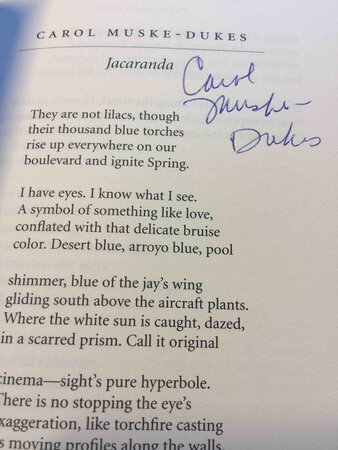 CAROL MUSKE-DUKES
Jacaranda
Carol
Muske-
Dukes
They are not lilacs, though
their thousand blue torches
rise up everywhere on our
boulevard and ignite Spring.
I have eyes. I know what I see.
A symbol of something like love,
conflated with that delicate bruise
color. Desert blue, arroyo blue, pool
shimmer, blue of the jay's wing
gliding south above the aircraft plants.
Where the white sun is caught, dazed,
in a scarred prism. Call it original
cinema—sight's pure hyperbole.
There is no stopping the eye's
xaggeration, like torchfire casting
s moving profiles along the walls